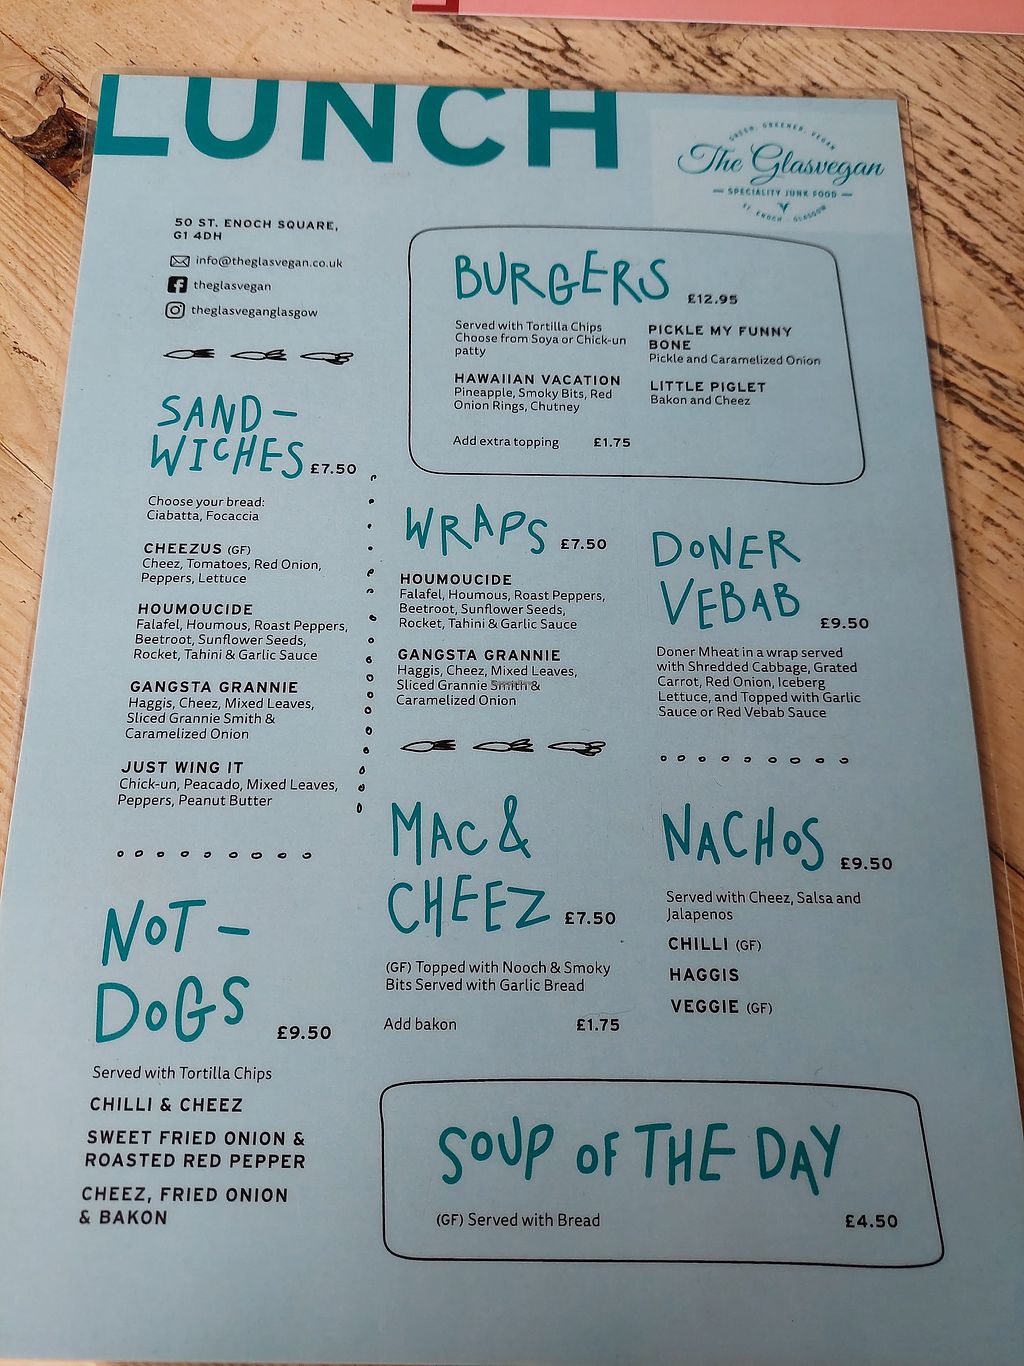 LUNCH
GREEN, GREENER, VEGAN
The Glasvegan
SPECIALITY JUNK FOOD
ST. ENOCH - GLASGOW
50 ST. ENOCH SQUARE,
G1 4DH
info@theglasvegan.co.uk
theglasvegan
theglasveganglasgow
BURGERS £12.95
Served with Tortilla Chips
Choose from Soya or Chick-un
patty
HAWAIIAN VACATION
Pineapple, Smoky Bits, Red
Onion Rings, Chutney
PICKLE MY FUNNY
BONE
Pickle and Caramelized Onion
LITTLE PIGLET
Bacon and Cheez
Add extra topping £1.75
SAND-
WICHES £7.50
Choose your bread:
Ciabatta, Focaccia
CHEEZUS (GF)
Cheez, Tomatoes, Red Onion,
Peppers, Lettuce
HOUMOUCIDE
Falafel, Houmous, Roast Peppers,
Beetroot, Sunflower Seeds,
Rocket, Tahini & Garlic Sauce
GANGSTA GRANNIE
Haggis, Cheez, Mixed Leaves,
Sliced Grannie Smith &
Caramelized Onion
JUST WING IT
Chick-un, Peacado, Mixed Leaves,
Peppers, Peanut Butter
WRAPS £7.50
HOUMOUCIDE
Falafel, Houmous, Roast Peppers,
Beetroot, Sunflower Seeds,
Rocket, Tahini & Garlic Sauce
GANGSTA GRANNIE
Haggis, Cheez, Mixed Leaves,
Sliced Grannie Smith &
Caramelized Onion
DONER
VEBAB £9.50
Doner Mheat in a wrap served
with Shredded Cabbage, Grated
Carrot, Red Onion, Iceberg
Lettuce, and Topped with Garlic
Sauce or Red Vebab Sauce
NOT-
DOGS £9.50
Served with Tortilla Chips
CHILLI & CHEEZ
SWEET FRIED ONION &
ROASTED RED PEPPER
CHEEZ, FRIED ONION
& BAKON
MAC &
CHEEZ £7.50
(GF) Topped with Nooch & Smoky
Bits Served with Garlic Bread
Add bakon £1.75
NACHOS £9.50
Served with Cheez, Salsa and
Jalapenos
CHILLI (GF)
HAGGIS
VEGGIE (GF)
SOUP OF THE DAY
(GF) Served with Bread £4.50